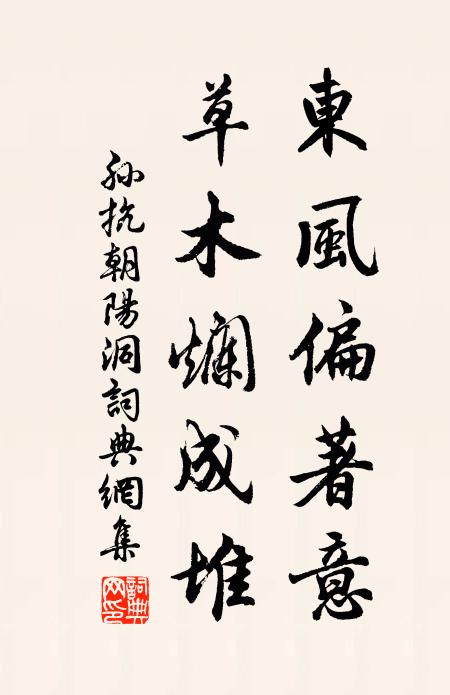 東風偏著意
草木爛成堆
孫抗朝陽洞詞典網集
詞典网印